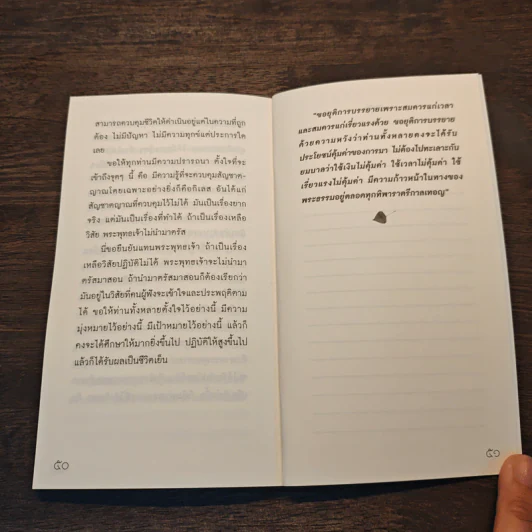 สามารถควบคุมชีวิตให้ดำเป็นอยู่แต่ในความที่ถูก
ต้อง ไม่มีปัญหา ไม่มีความทุกข์แต่ประการใด
เลย
ขอให้ทุกท่านมีความปรารถนา ตั้งใจที่จะ
เข้าถึงจุดๆ นี้ คือ มีความรู้ที่จะควบคุมสัญชาต-
ญาณโดยเฉพาะอย่างยิ่งก็คือกิเลส อันได้แก่
สัญชาตญาณที่ควบคุมไว้ไม่ได้ มันเป็นเรื่องยาก
จริง แต่มันเป็นเรื่องที่ทำได้ ถ้าเป็นเรื่องเหลือ
วิสัย พระพุทธเจ้าไม่นำมาตรัส
นี่ขอยืนยันแทนพระพุทธเจ้า ถ้าเป็นเรื่อง
เหลือวิสัยปฏิบัติไม่ได้ พระพุทธเจ้าจะไม่นำมา
ตรัสมาสอน ถ้านำมาตรัสมาสอนก็ต้องเรียกว่า
มันอยู่ในวิสัยที่คนผู้ฟังจะเข้าใจและประพฤติตาม
ได้ ขอให้ท่านทั้งหลายตั้งใจไว้อย่างนี้ มีความ
มุ่งหมายไว้อย่างนี้ มีเป้าหมายไว้อย่างนี้ แล้วก็
คงจะได้ศึกษาให้มากยิ่งขึ้นไป ปฏิบัติให้สูงขึ้นไป
แล้วก็ได้รับผลเป็นชีวิตเย็น
๕๐
"ขอยุติการบรรยายเพราะสมควรแก่เวลา
และสมควรแก่เรี่ยวแรงด้วย ขอยุติการบรรยาย
ด้วยความหวังว่าท่านทั้งหลายคงจะได้รับ
ประโยชน์คุ้มค่าของการมา ไม่ต้องไปทะเลาะกับ
ยมบาลว่าใช้เงินไม่คุ้มค่า ใช้เวลาไม่คุ้มค่า ใช้
เรี่ยวแรงไม่คุ้มค่า มีความก้าวหน้าในทางของ
พระธรรมอยู่ตลอดทุกทิพาราตรีกาลเทอญ"
๕๑